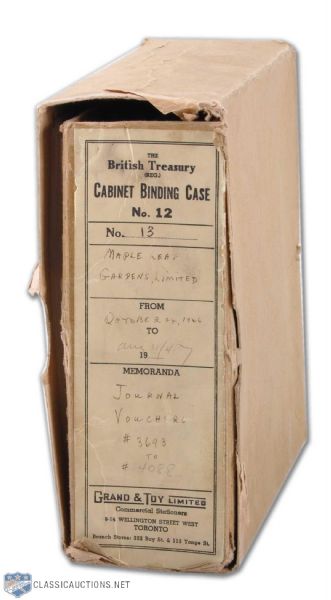 THE
British Treasury
(REG.)
CABINET BINDING CASE
No. 12
No. 13
MAPLE LEAF
GARDENS, LIMITED
FROM
OCTOBER 24, 1946
TO
19
MEMORANDA
JOURNAL
VOUCHERS
# 3693
TO
# 4088
GRAND & TOY LIMITED
Commercial Stationers
8-14 WELLINGTON STREET WEST
TORONTO
Branch Stores: 332 Bay St. & 115 Yonge St.
CLASSICAUCTIONS.NET